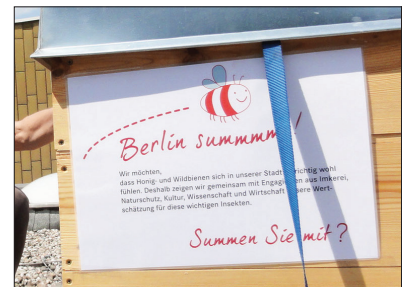 Berlin summmm!
Wir möchten,
dass Honig- und Wildbienen sich in unserer Stadt richtig wohl
fühlen. Deshalb zeigen wir gemeinsam mit Engagierten aus Imkerei,
Naturschutz, Kultur, Wissenschaft und Wirtschaft unsere Wert-
schätzung für diese wichtigen Insekten.
Summen Sie mit?